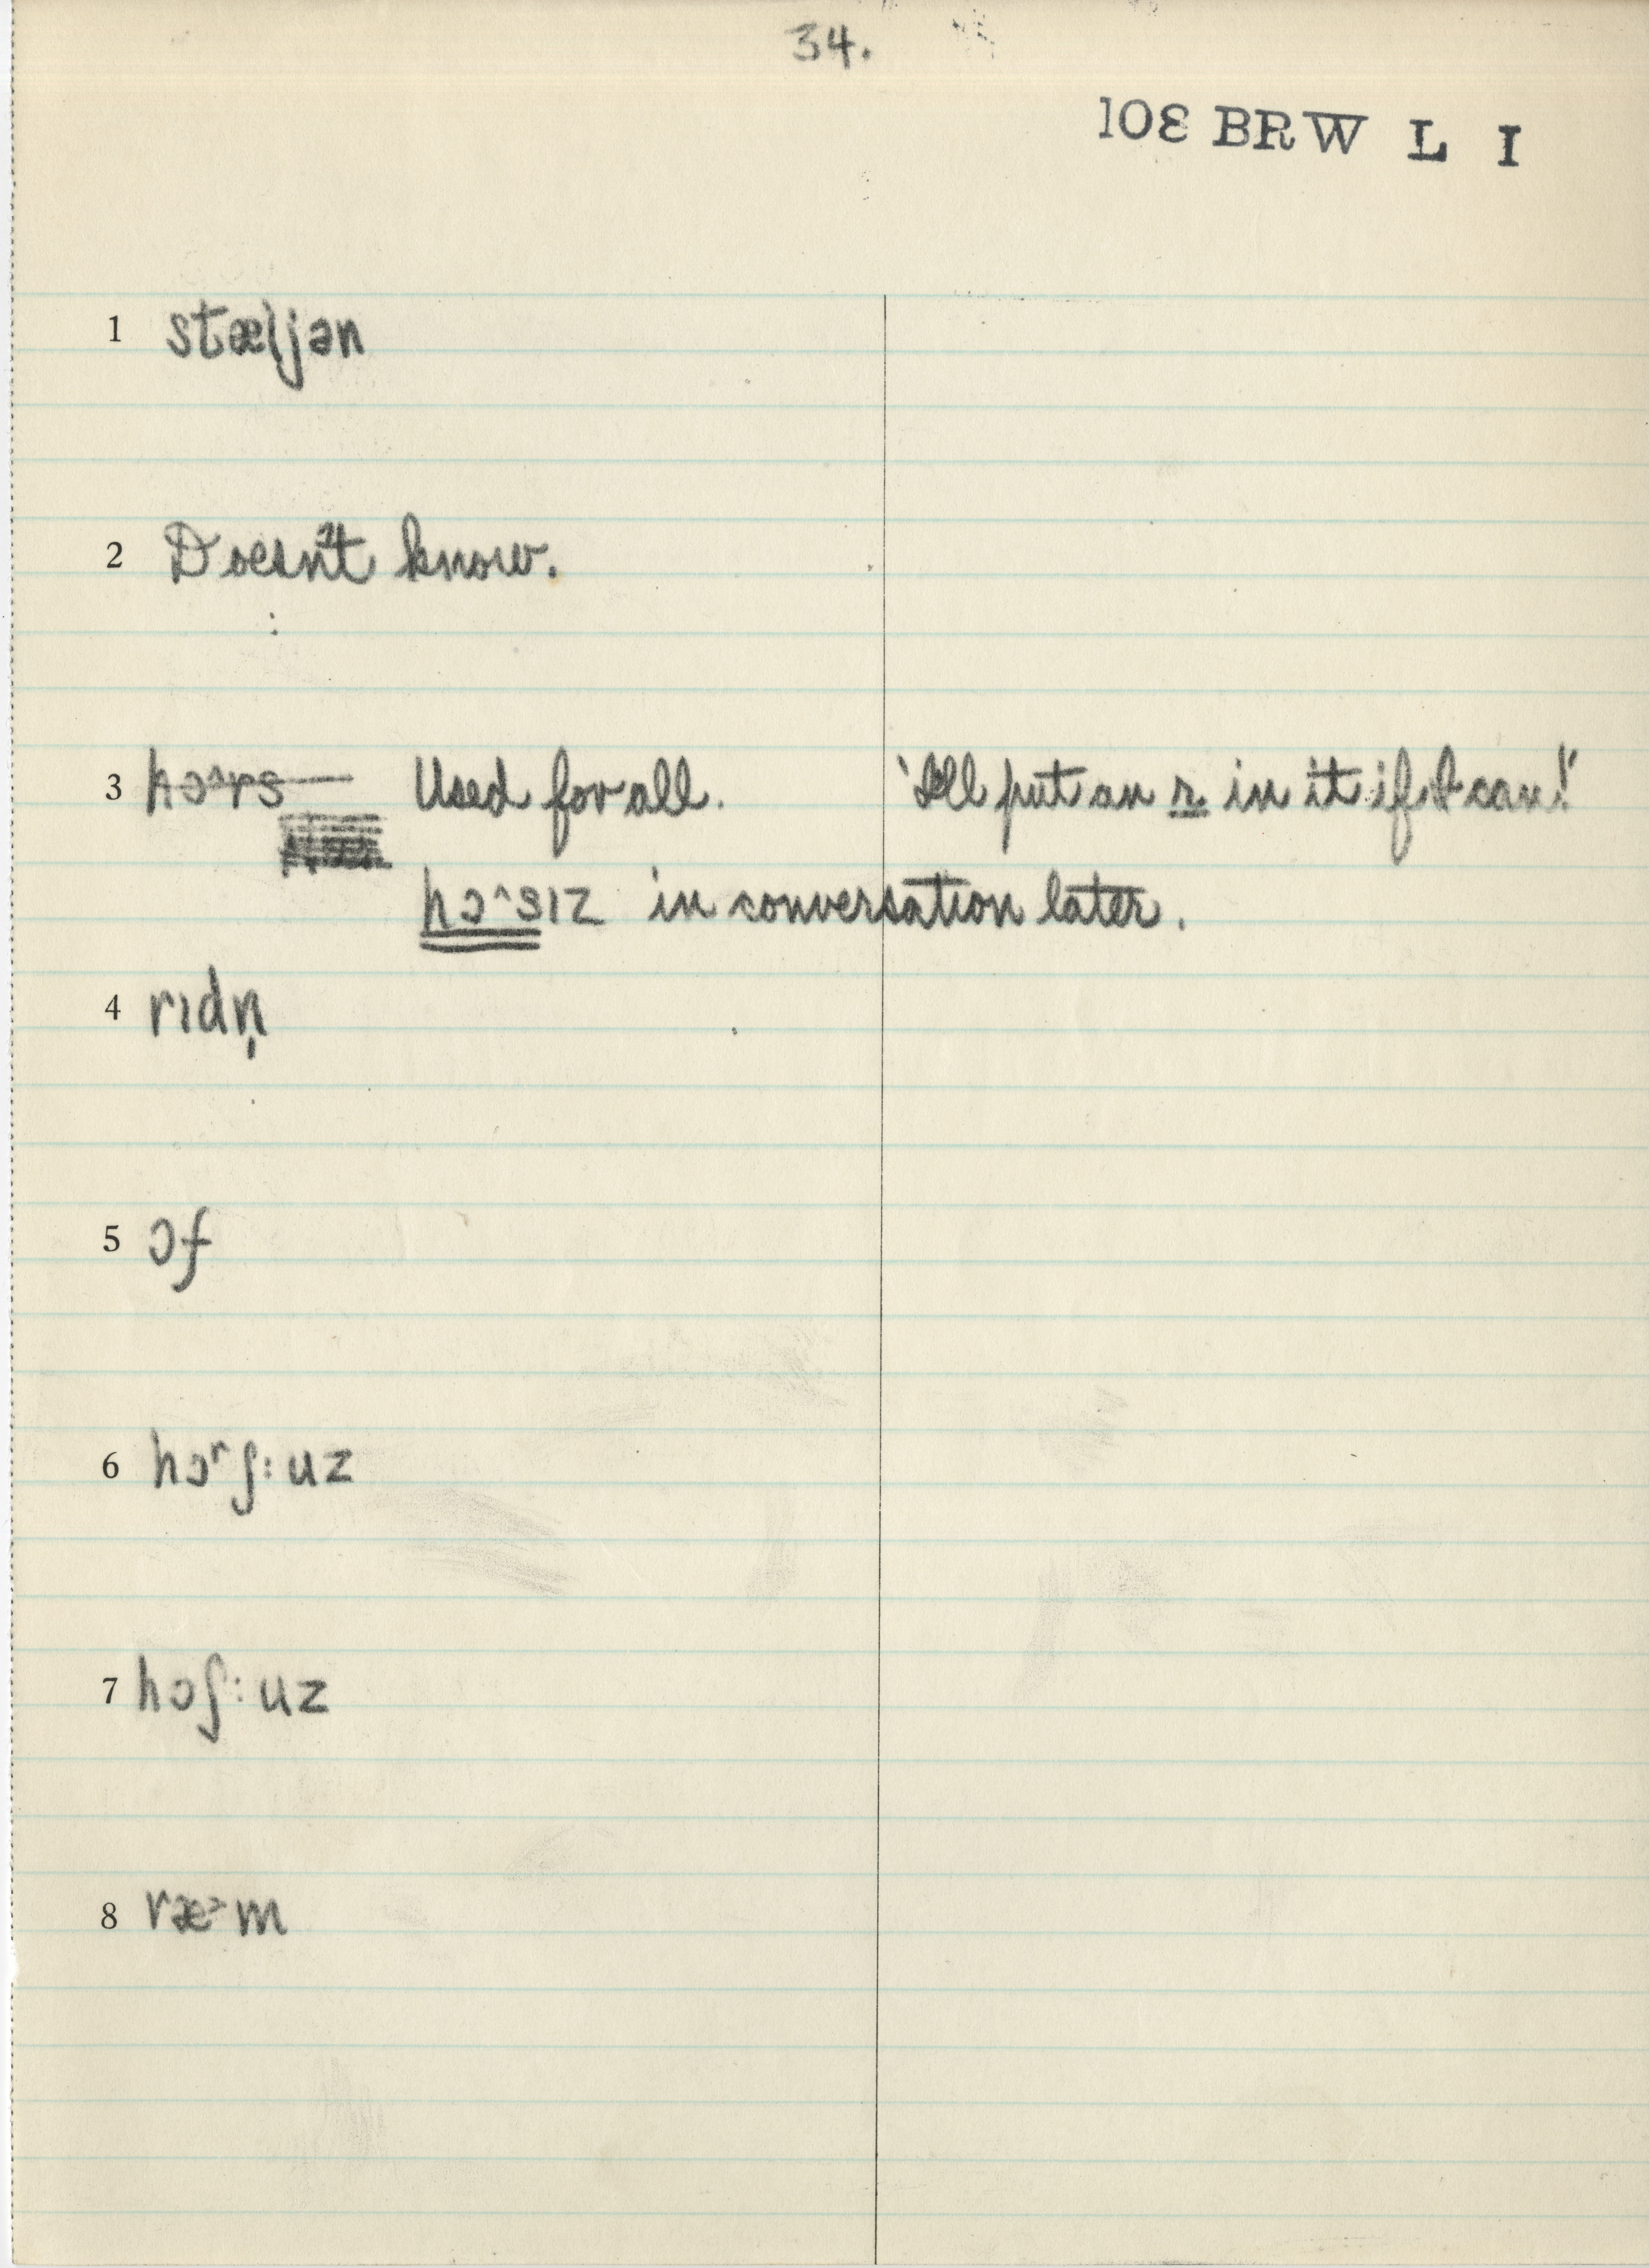 34.
10ε BRW L I
1 stæljən
2 Doesn't know.
3 hɔ^rs Used for all. 'I'll put an r in it if I can!'
hɔ^sɪz in conversation later.
4 rɪdn̩
5 ɔf
6 hɔʳʃ:uz
7 hɔʃ:uz
8 ræ>m